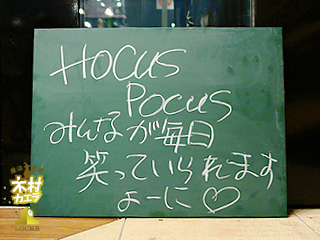 HOCUS
POCUS
みんなが毎日
笑っていられます
よーに♡
木村
カエラ
LOCKS